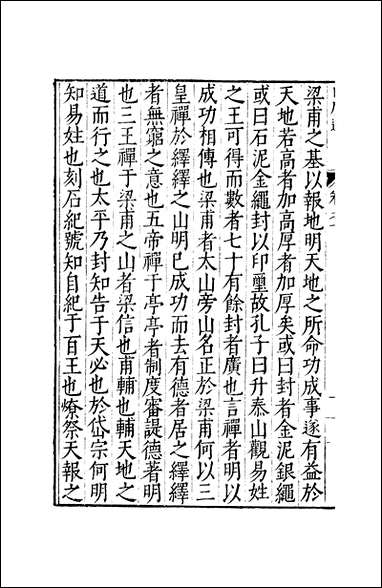 梁甫之基以報地明天地之所命功成事遂有益於
天地若高者加高厚者加厚矣或曰封者金泥銀繩
或曰石泥金繩封以印璽故孔子曰升泰山觀易姓
之王可得而數者七十有餘封者廣也言禪者明以
成功相傳也梁甫者太山旁山名正於梁甫何以三
皇禪於繹繹之山明已成功而去有德者居之繹繹
者無窮之意也五帝禪于亭亭者制度審諟德著明
也三王禪于梁甫之山者梁信也甫輔也輔天地之
道而行之也太平乃封知告于天必也於岱宗何明
知易姓也刻石紀號知自紀于百王也燎祭天報之